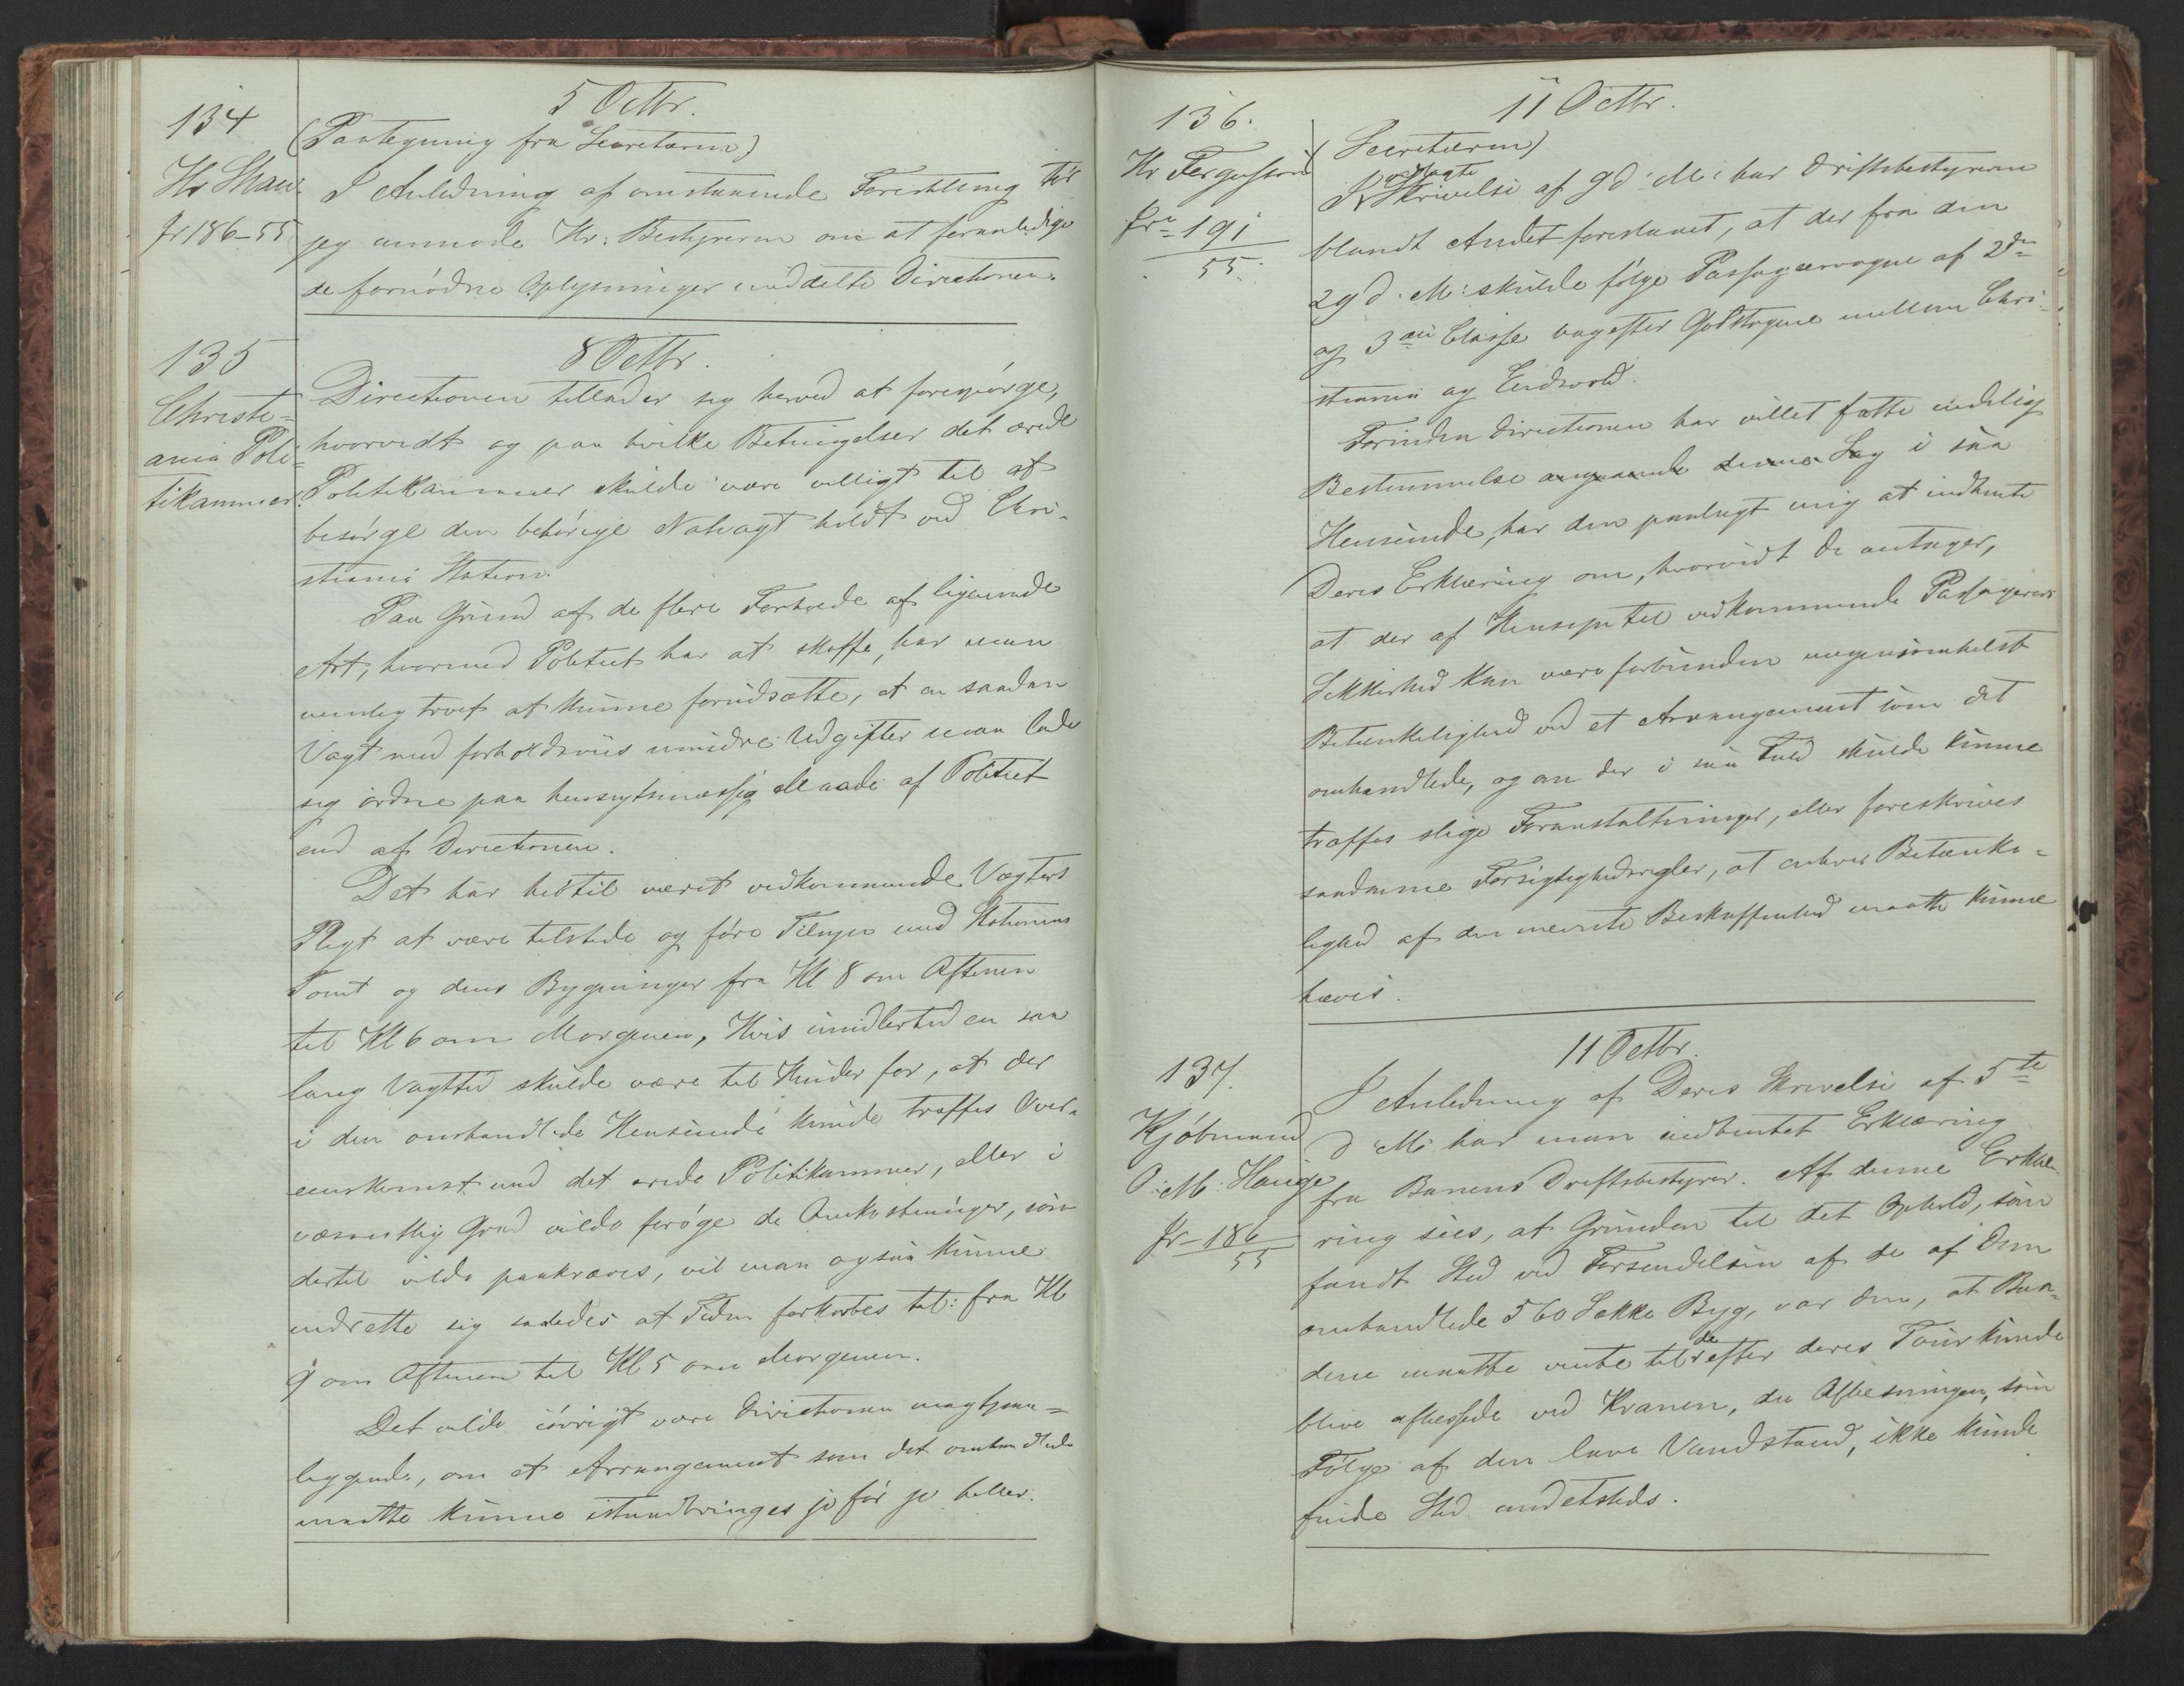 134
Hr Shaw
Jr 186-55
5 Octbr.
(Paategning fra Secretæren)
I Anledning af omstaaende Forestilling tør
jeg anmode Hr: Bestyreren om at foranledige
de fornödne Oplysninger meddelte Directionen.
135
Christi=
ania Poli=
tikammer.
8 Octbr.
Directionen tillader sig herved at forespörge,
hvorvidt og paa hvilke Betingelser det ærede
Politikammer skulde være villigt til at
besörge den behörige Natvagt holdt ved Chri-
stiania Station.
Paa Grund af de flere Forhold af lignende
Art, hvormed Politiet har at skaffe, har man
nemlig troet at kunne forudsætte, at en saadan
Vagt med forholdsviis mindre Udgifter maa lade
sig ordne paa hensigtsmæssig Maade af Politiet
end af Directionen.
Det har hidtil været vedkommende Vægters
Pligt at være tilstede og före Tilsyn med Stationens
Tomt og dens Bygninger fra Kl 8 om Aftenen
til Kl 6 om Morgenen, Hvis imidlertid en saa
lang Vagttid skulde være til Hinder for, at der
i den omhandlede Henseende kunde træffes Over-
eenskomst med det ærede Politikammer, eller i
væsentlig Grad vilde foröge de Omkostninger, som
dertil vilde paakræves, vil man ogsaa kunne
indrette sig saaledes at Tiden forkortes til: fra Kl
9 om Aftenen til Kl 5 om Morgenen.
Det vilde iövrigt være Directionen magtpaa=
liggende, om et Arrangement som det omhandlede
maatte kunne istandbringes jo för jo heller.
136.
Hr Fergusson
Jr 191
55.
11 Octbr.
(Secretæren)
I vedlagte
Skrivelse af 9d: M: har Driftsbestyreren
blandt Andet foreslaaet, at der fra den
29 d. M: skulde fölge Passagervogne af 2den
og 3die Classe bagefter Godstogene mellem Chri-
stiania og Eidsvold.
Forinden Directionen har villet fatte endelig
Bestemmelse angaaende denne Sag i saa
Henseende, har den paalagt mig at indhente
Deres Erklæring om, hvorvidt De antager,
at der af Hensyn til vedkommende Passagerers
Sikkerhed kan være forbunden nogensomhelst
Betænkelighed ved et Arrangement som det
omhandlede, og om der i saa Fald skulde kunne
træffes slige Foranstaltninger, eller foreskrives
saadanne Forsigtighedsregler, at enhver Betænke=
lighed af den nævnte Beskaffenhed maatte kunne
hæves.
137.
Kjöbmand
O: M: Hauge
Jr 186
55
11 Octbr.
I Anledning af Deres Skrivelse af 5te
d M: har man indhentet Erklæring
fra Banens Driftsbestyrer. Af denne Erklæ
ring sees, at Grunden til det Ophold, som
fandt Sted ved Forsendelsen af de af Dem
omhandlede 560 Sække Byg, var den, at Baa=
dene maatte vente til de efter deres Tour kunde
blive aflæssede ved Kranen, da Aflæsningen, som
Fölge af den lave Vandstand, ikke kunde
finde Sted andetsteds.